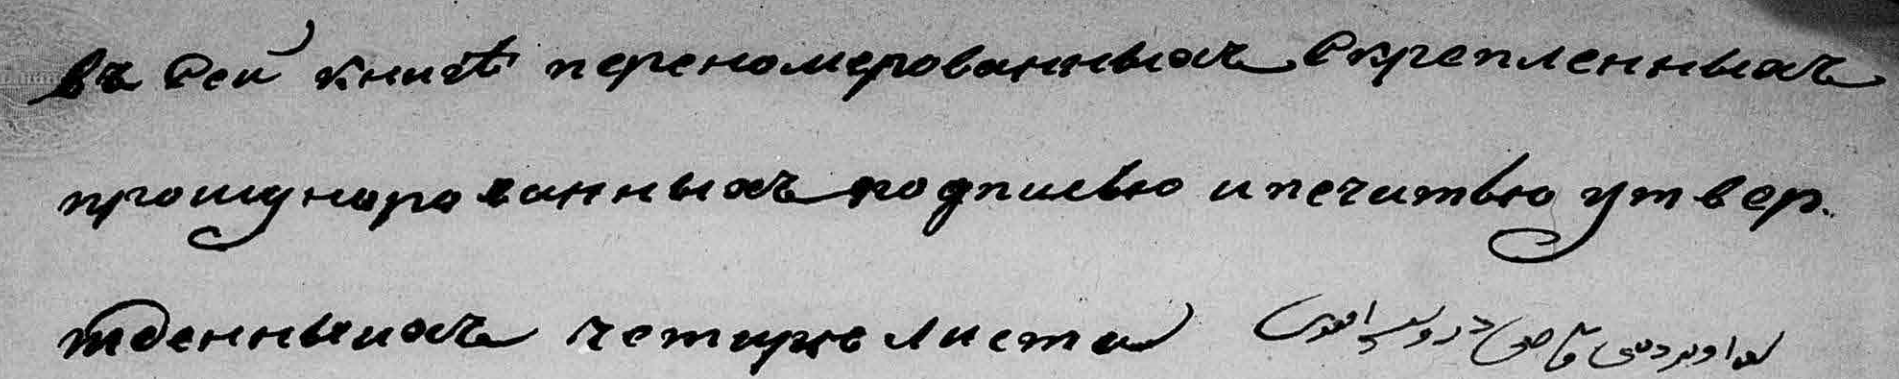 въ сей книгѣ переномерованныхъ скрепленныхъ
прошунорованныхъ подписью и печатью утвер.
жденныихъ четире листа